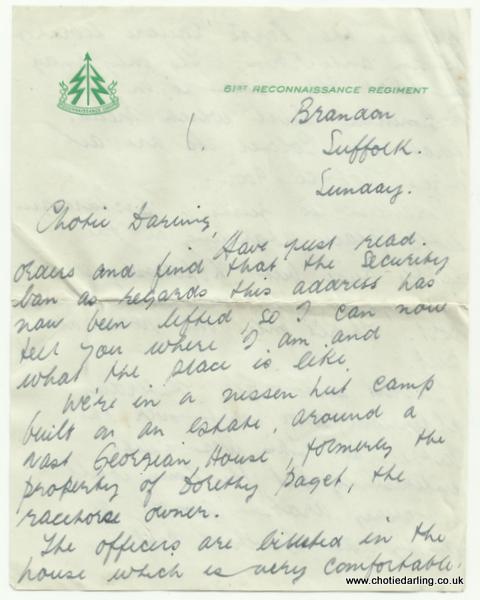 RECONNAISSANCE CORPS
61ST RECONNAISSANCE REGIMENT
1.
Brandon
Suffolk.
Sunday.
Chotie Darling,
Have just read
orders and find that the Security
ban as regards this address has
now been lifted, so I can now
tell you where I am and
what the place is like.
We're in a nissen hut camp
built on an estate, around a
vast Georgian House, formerly the
property of Dorothy Paget, the
racehorse owner.
The officers are billeted in the
house which is very comfortable.
www.chotiedarling.co.uk